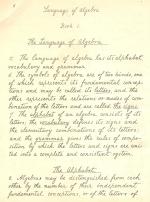 Language of Algebra
Book 1.
The Language of Algebra.
1 The language of algebra has its alphabet,
vocabulary and grammar.
2 The symbols of algebra are of two kinds, one
of which represents its fundamental concep-
tions and may be called its letters, and the
other represents the relations or modes of com-
bination of the letters and are called the signs.
3 The alphabet of an algebra consists of its
letters; the vocabulary defines its signs and
the elementary combinations of its letters;
and the grammar gives the rules of compo-
sition by which the letters and signs are uni-
ted into a complete and consistent system.
The Alphabet.
Algebras may be distinguished from each
other by the number of their independent
fundamental conceptions, or of the letters of